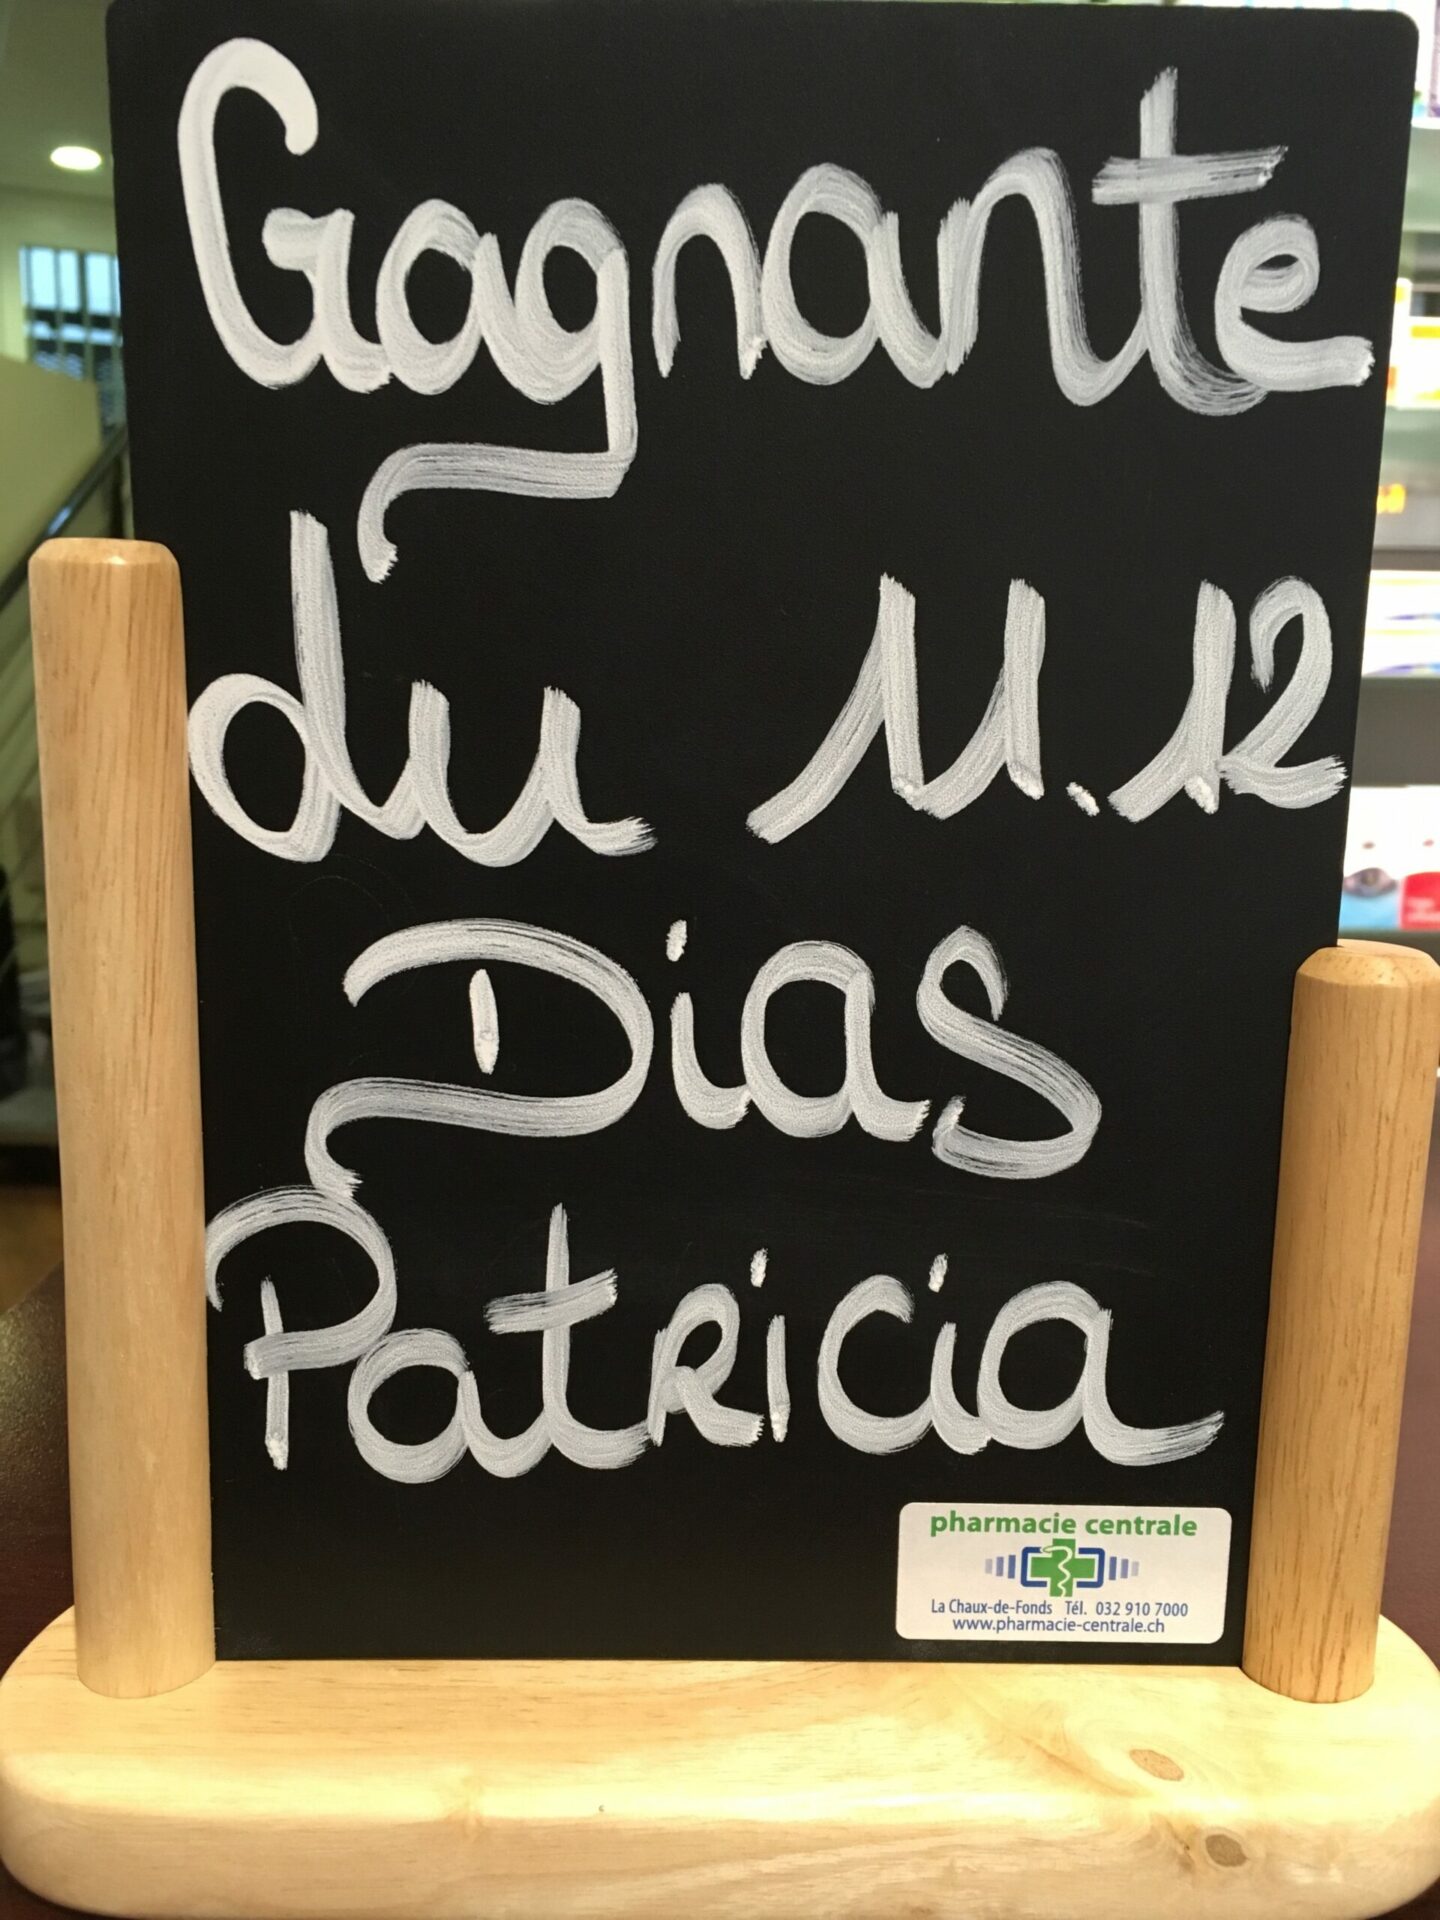 Gagnante
du 11.12
Dias
Patricia
pharmacie centrale
La Chaux-de-Fonds Tél. 032 910 7000
www.pharmacie-centrale.ch